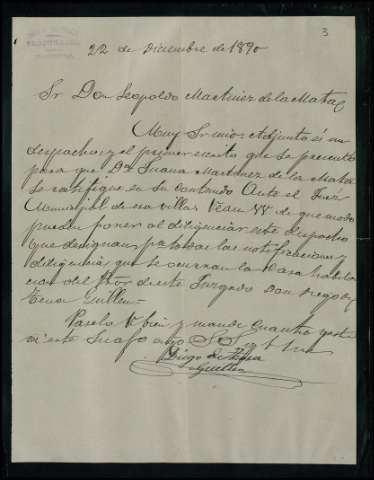 3
22 de Diciembre de 1890
Sr Don Leopoldo Martinez de la Mata
Muy Sr mio: Adjunto á un
despacho y el primer escrito que se presento
para que Dª Juana Martinez de la Mata
se ratifique en su contenido Ante el Juez
Municipal de esa villa. Vean VV de que modo
pueden poner al diligenciar este despacho
que designan para las notificaciones y
diligencias que se ocurran la Casa habita
cion del de este Juzgado Don Diego de
Tena Guillen
Paselo V bien y mande cuanto guste
á este su afmo S. S.
Diego de Tena
Guillen